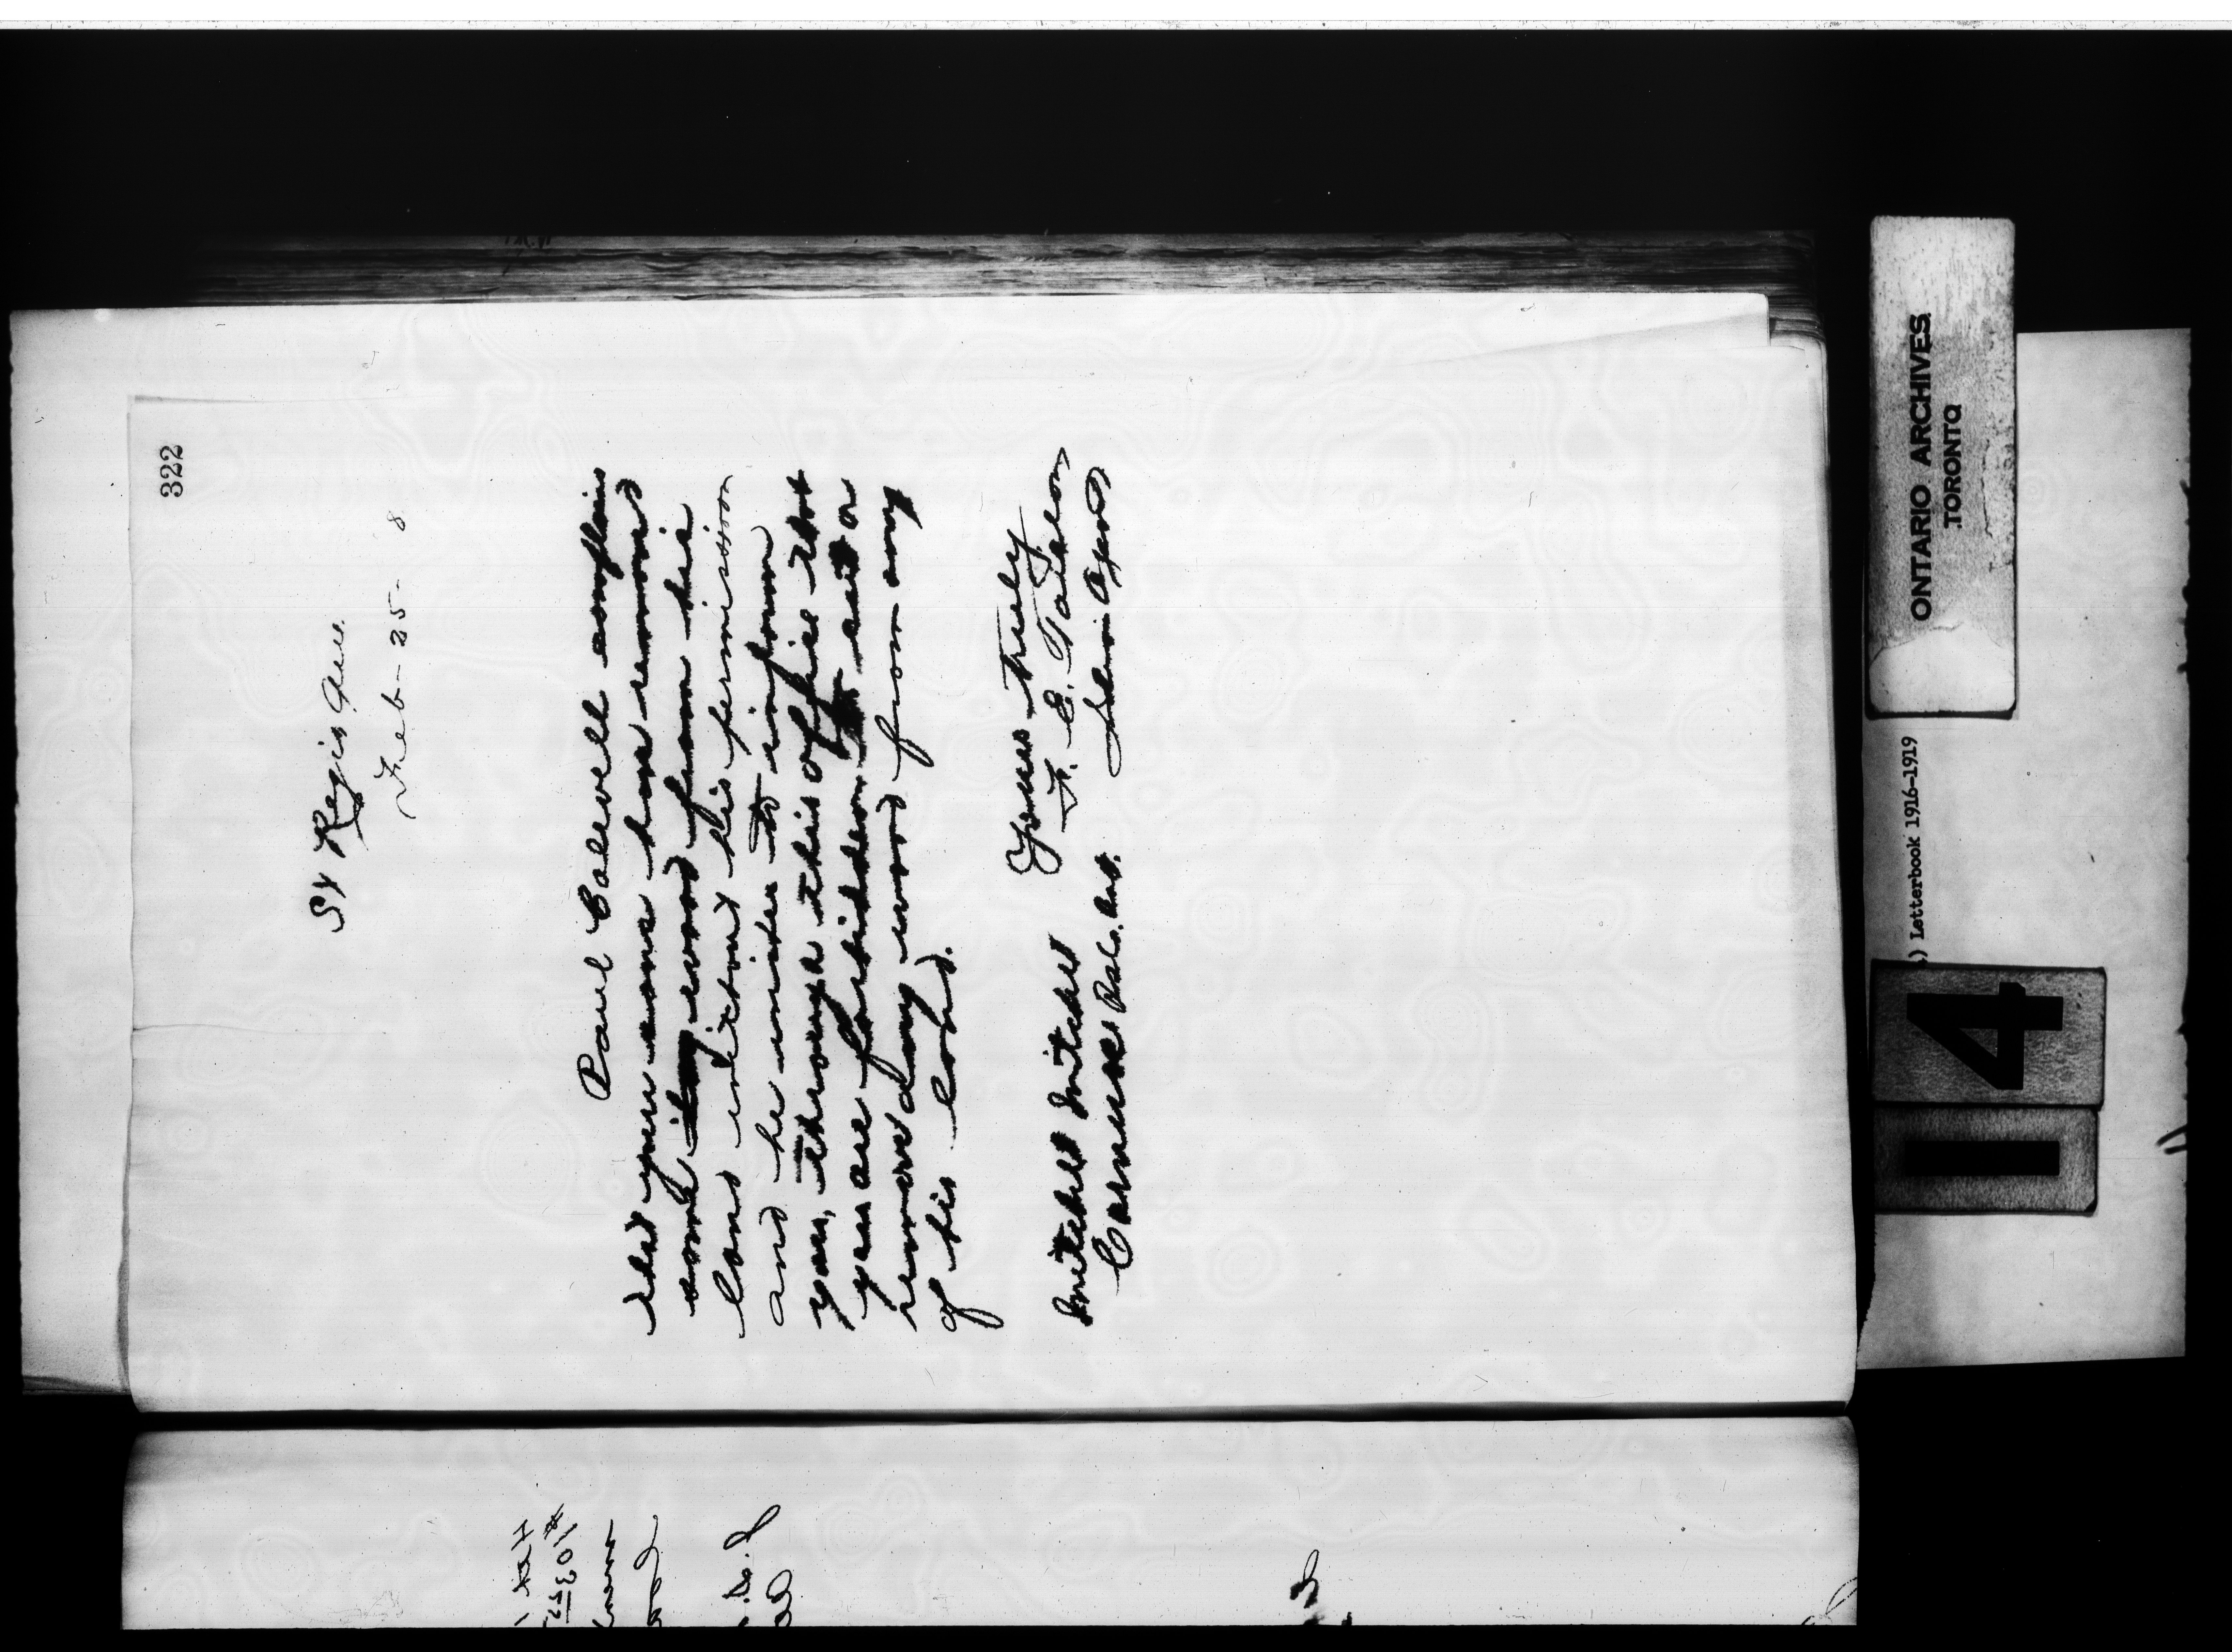 322
St Regis Que.
Feb - 25 - 8
Paul Calvell complains
that you some have removed
some wood from his
land without his permission
and he wishes to inform
you, through this office that
you are forbidden to cut or
remove any wood from any
of his land.
Yours truly
F. E. Taillon
Indian Agent
Mitchel Mitchel
Cornwall Ont.
ONTARIO ARCHIVES
TORONTO
) Letterbook 1916-1919
14